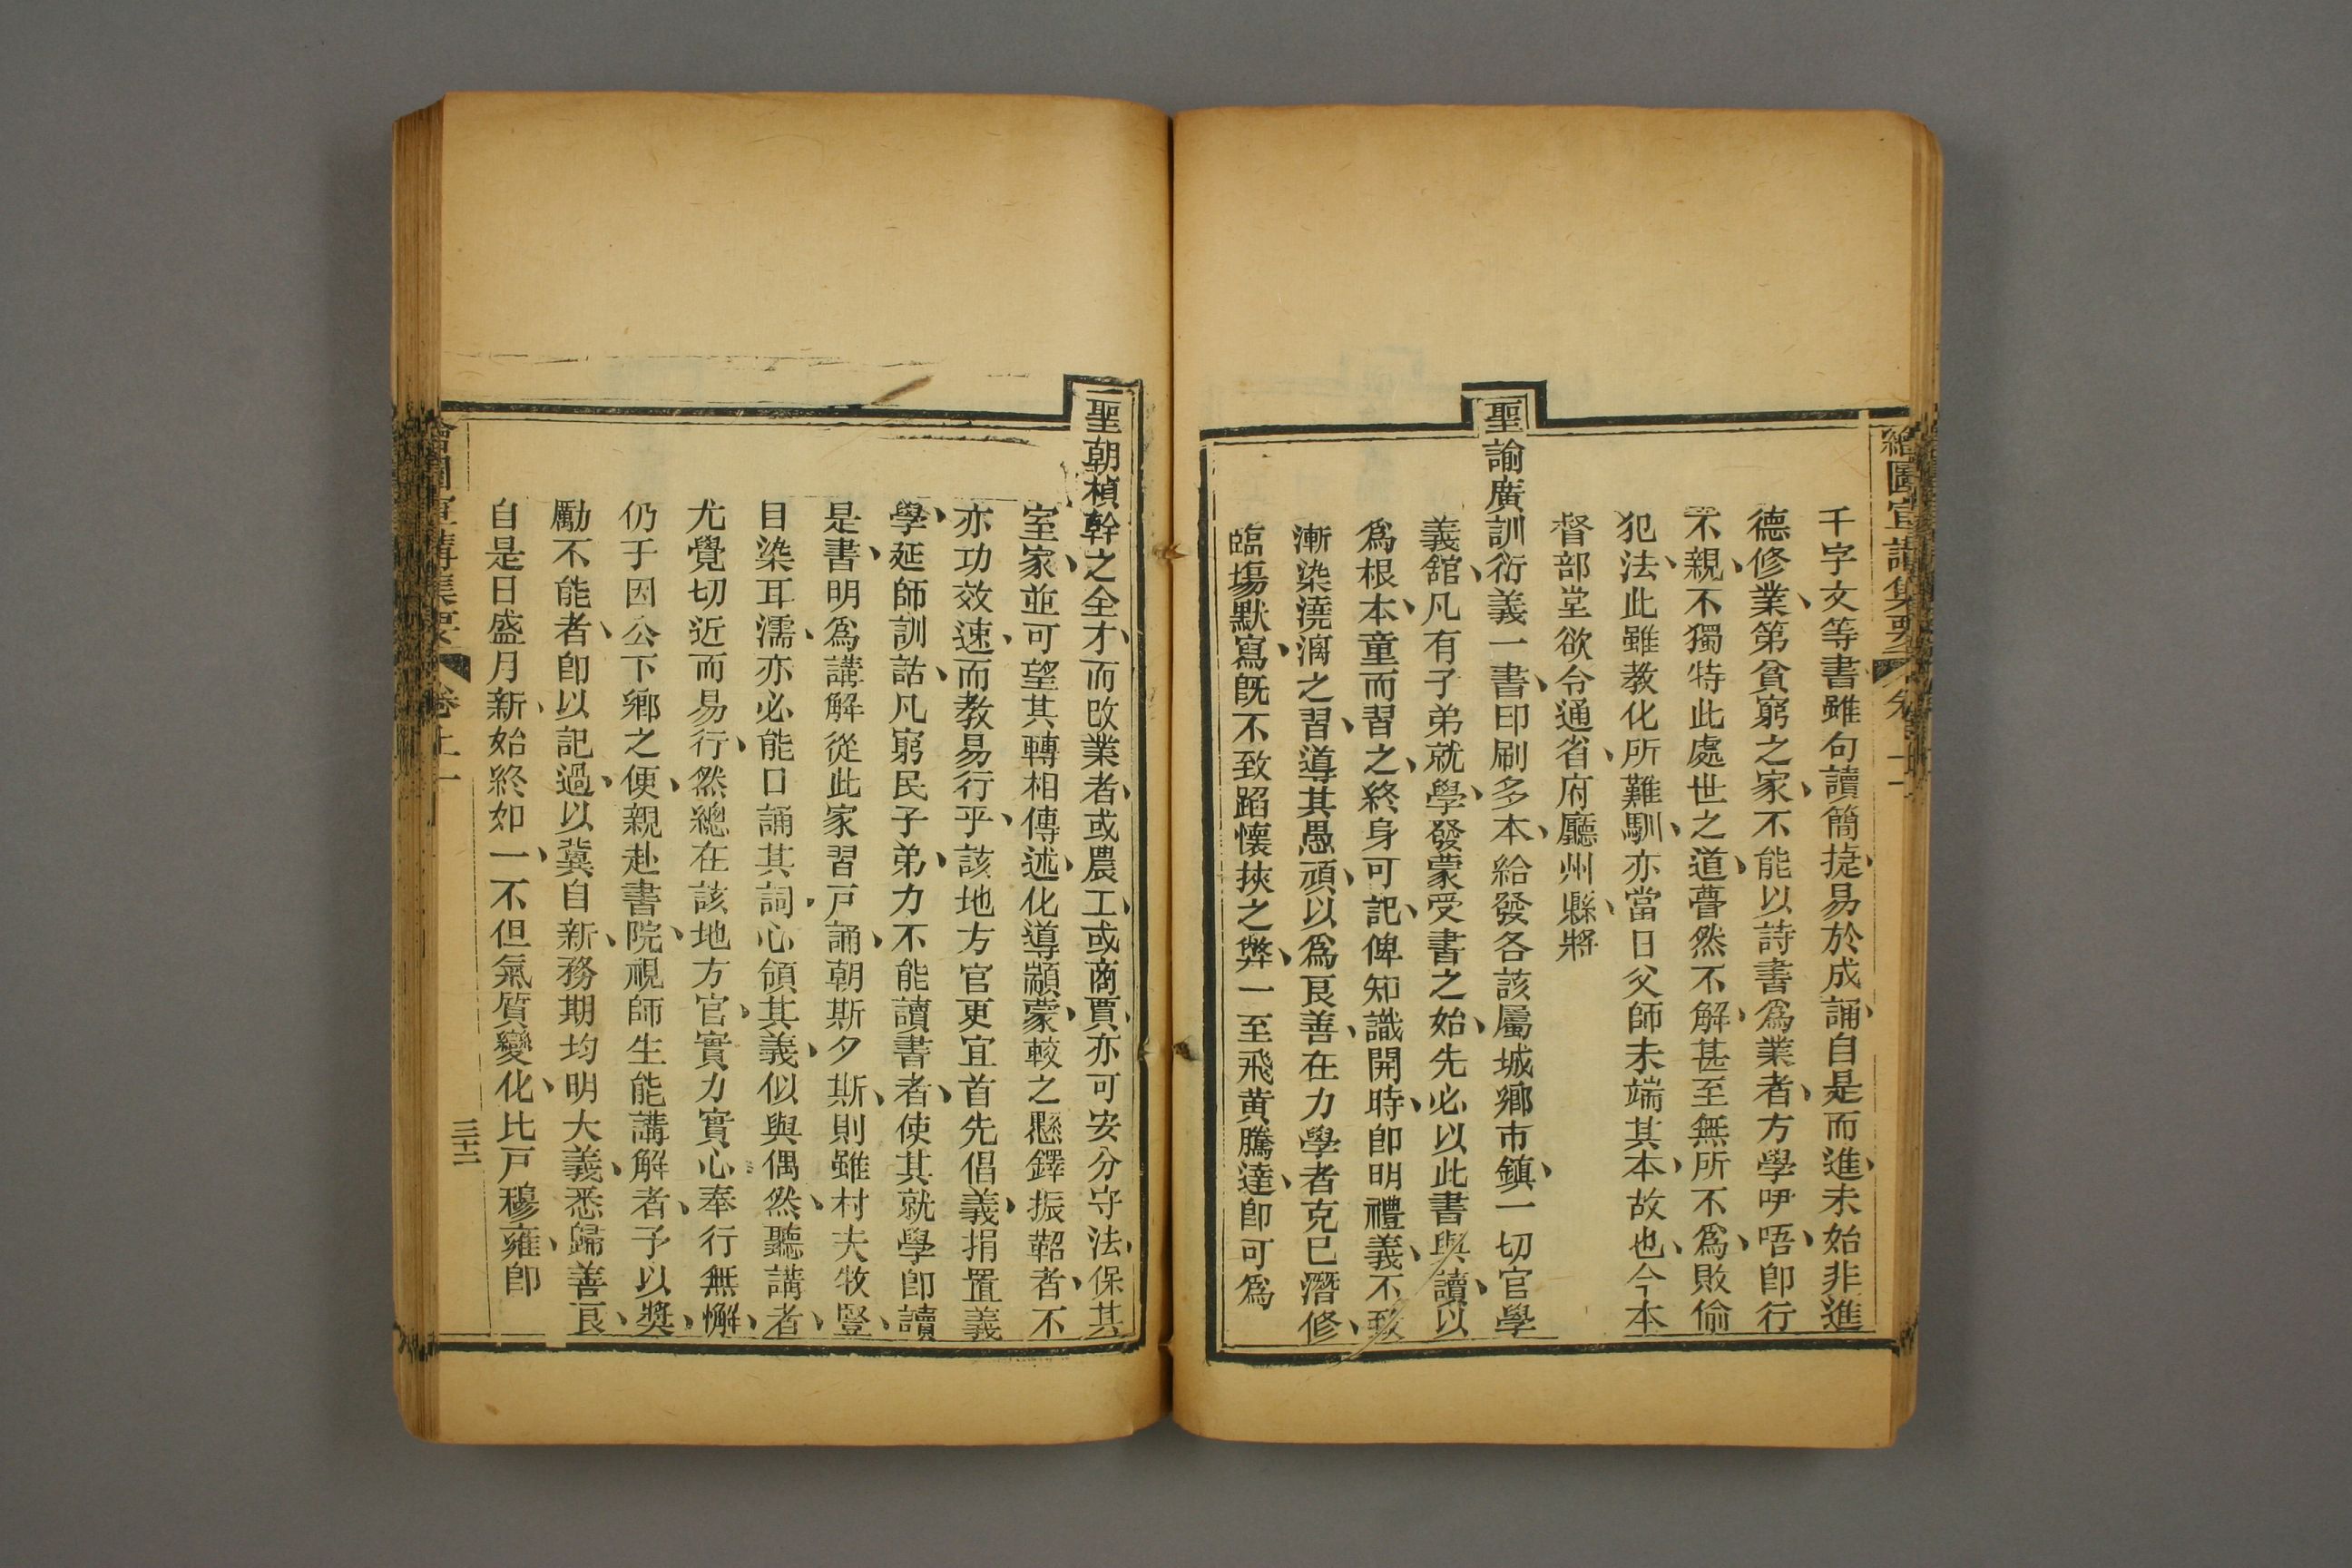 繪圖宣講集要
千字文等書雖句讀簡捷易於成誦自是而進未始非進
德修業第貧窮之家不能以詩書爲業者方學咿唔卽行
不親不獨特此處世之道瞢然不解甚至無所不爲敗倫
犯法此雖教化所難馴亦當日父師未端其本故也今本
督部堂欲令通省府廳州縣將
聖諭廣訓衍義一書印刷多本給發各該屬城鄉市鎮一切官學
義舘凡有子弟就學發蒙受書之始先必以此書與讀以
爲根本童而習之終身可記俾知識開時卽明禮義不致
漸染澆漓之習導其愚頑以爲良善在力學者克已潛修
臨塲默寫旣不致蹈懷挾之弊一至飛黃騰達卽可爲
聖朝楨幹之全才而改業者或農工或商賈亦可安分守法保其
室家並可望其轉相傳述化導顓蒙較之懸鐸振鞀者不
亦功效速而教易行乎該地方官更宜首先倡義捐置義
學延師訓詁凡窮民子弟力不能讀書者使其就學卽讀
是書明爲講解從此家習戸誦朝斯夕斯則雖村夫牧豎
目染耳濡亦必能口誦其詞心領其義似與偶然聽講者
尤覺切近而易行然總在該地方官實力實心奉行無懈
仍于因公下鄉之便親赴書院視師生能講解者予以獎
勵不能者卽以記過以冀自新務期均明大義悉歸善良
自是日盛月新始終如一不但氣質變化比戸穆雍卽
繪圖宣講集要 卷上一
三十二